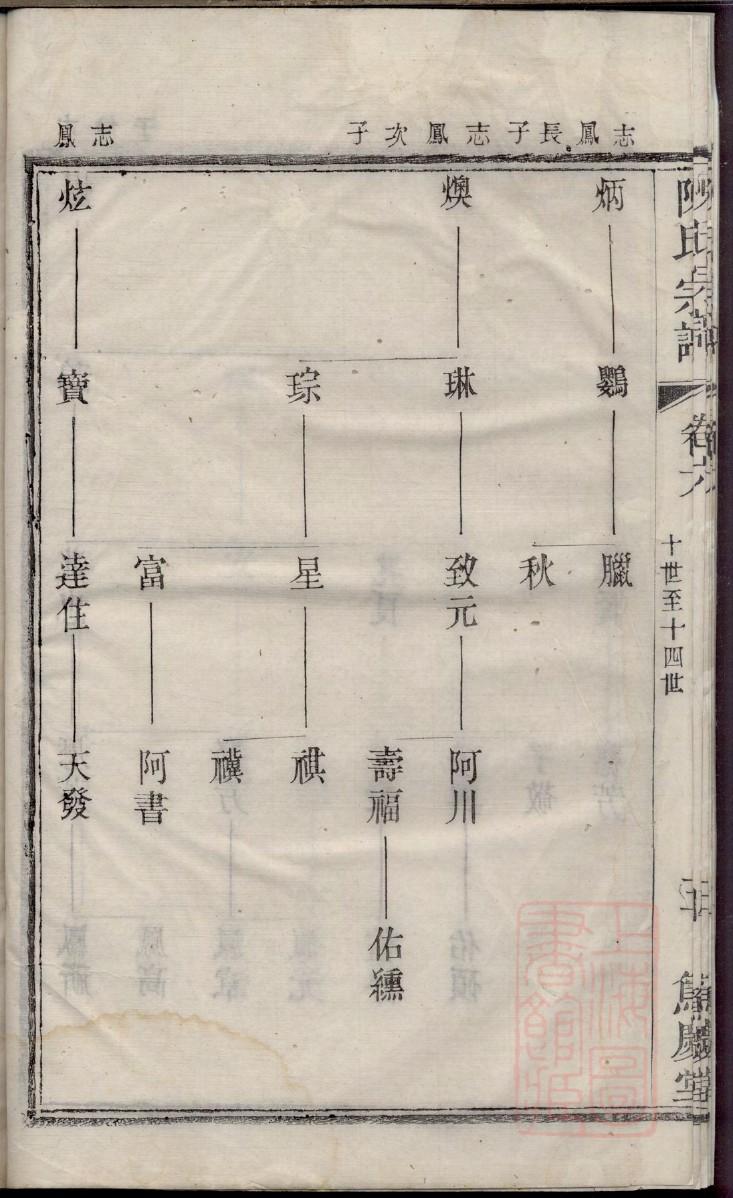 志鳳長子
志鳳次子
志鳳
炳
燠
炫
鸚
琳
琮
寶
臘
秋
致元
星
富
達住
阿川
壽福
祺
禥
阿書
天發
佑纁
陳氏宗譜
卷六
十世至十四世
上海圖書館藏